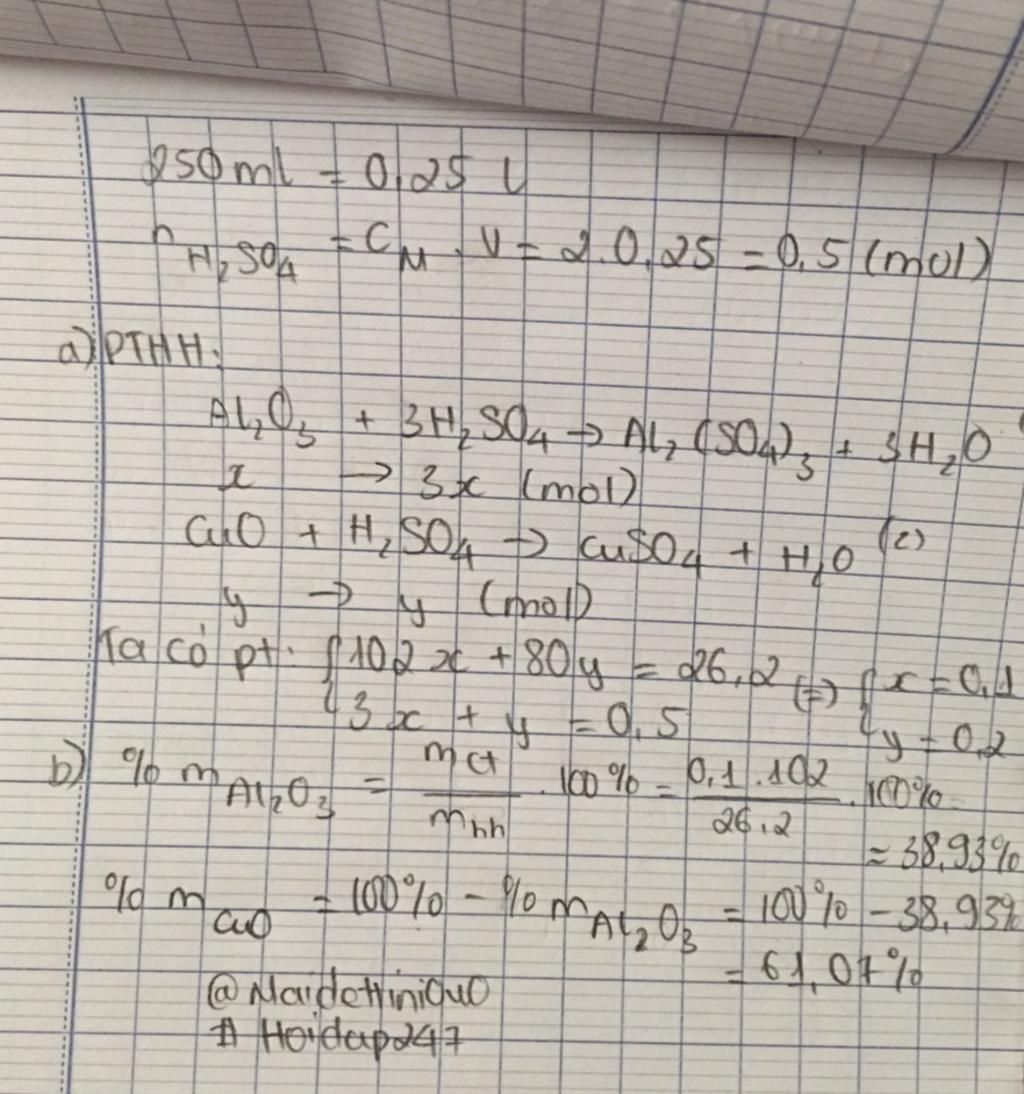 250ml = 0,25 l
nH₂SO₄ = CM . V = 2.0,25 = 0,5 (mol)
a) PTHH:
Al₂O₃ + 3H₂SO₄ → Al₂(SO₄)₃ + 3H₂O (
x → 3x (mol)
CuO + H₂SO₄ → CuSO₄ + H₂O (2)
y → y (mol)
Ta có pt: { 102x + 80y = 26,2 (=) { x = 0,1
{ 3x + y = 0,5 { y = 0,2
b) % mAl₂O₃ = mct/mhh . 100% = 0,1.102/26,2 . 100%
= 38,93%
% mCuO = 100% - % mAl₂O₃ = 100% - 38,93%
= 61,07%
# Hoidap247